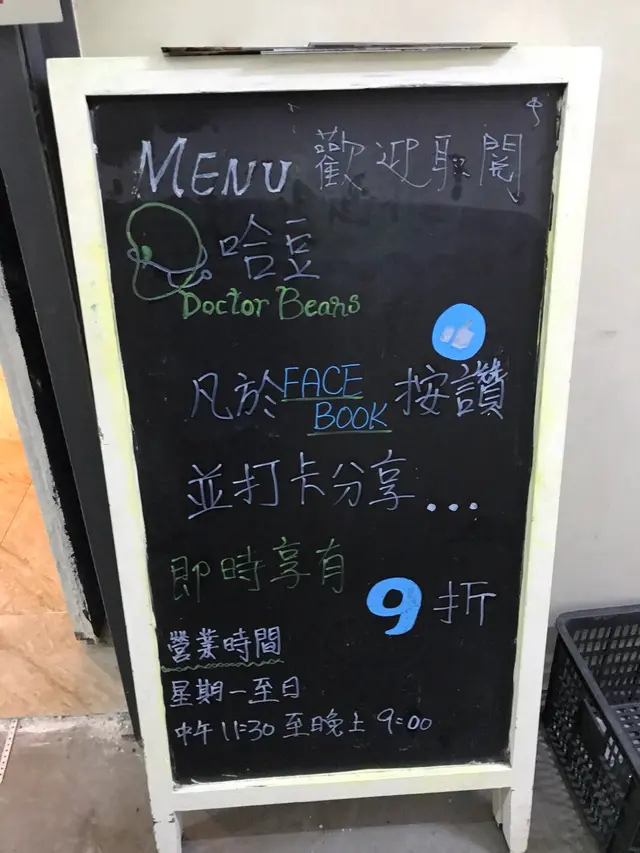 MENU 歡迎取閱
哈豆
Doctor Beans
凡於FACE BOOK按讚
並打卡分享...
即時享有
9折
營業時間
星期一至日
中午 11:30 至晚上 9:00